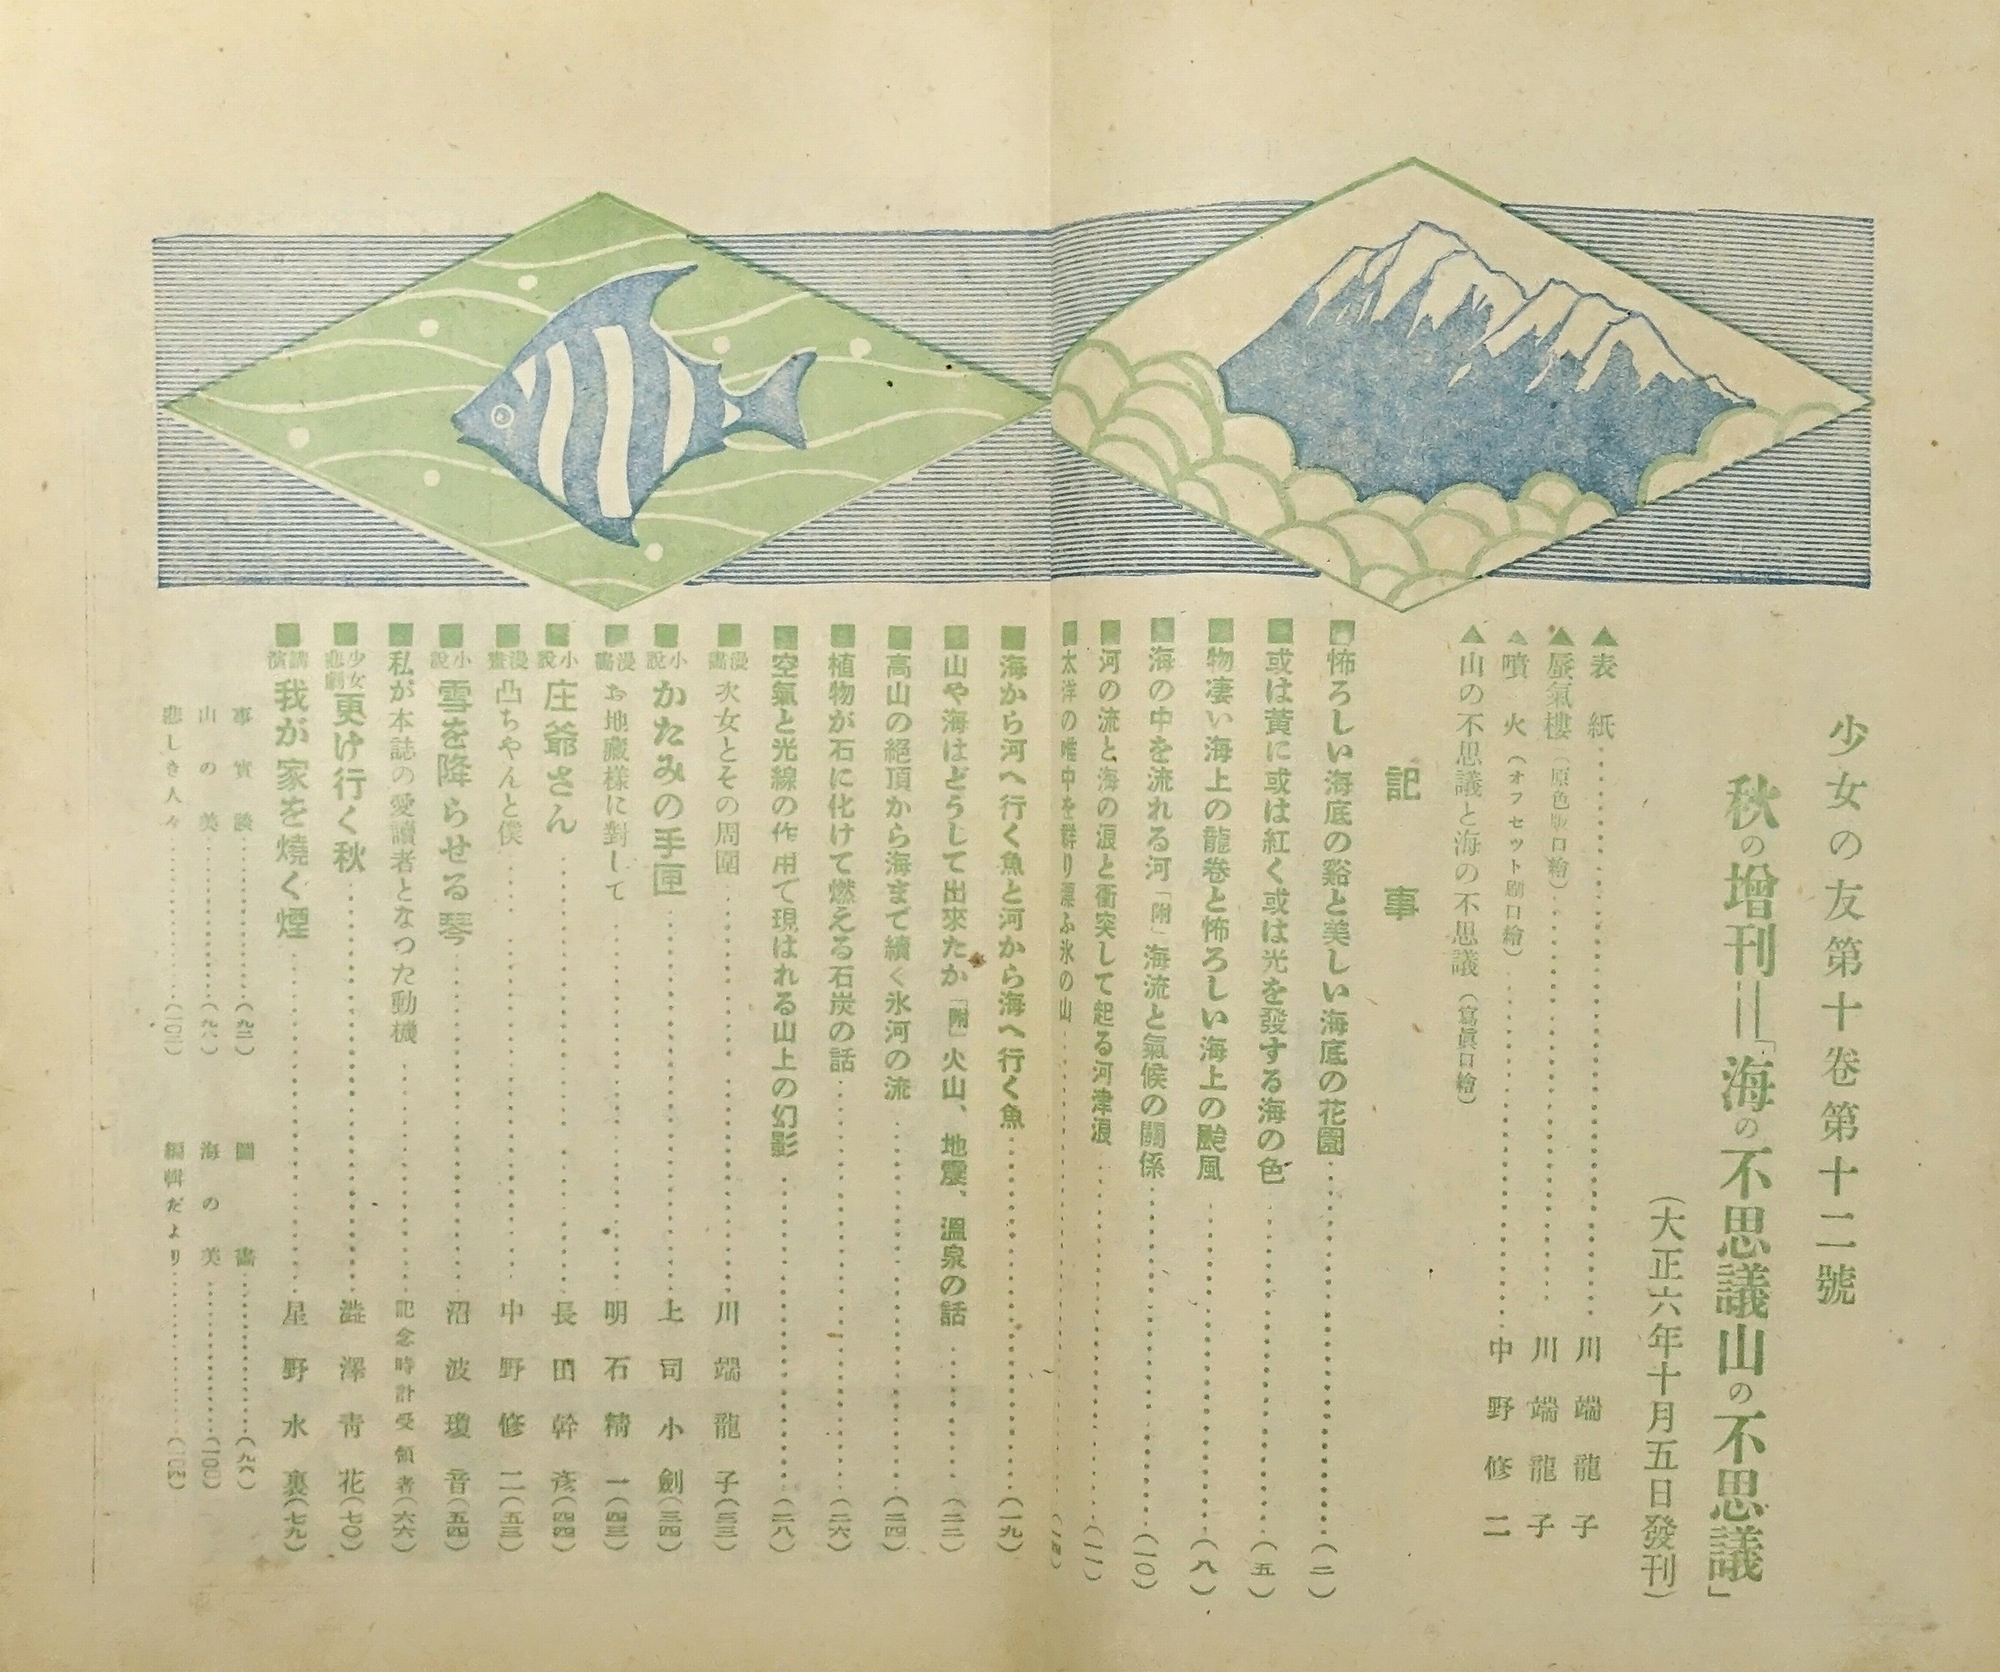 少女の友第十卷第十二號
秋の增刊＝「海の不思議山の不思議」
（大正六年十月五日發刊）
▲表紙…………川端龍子
▲蜃氣樓（原色版口繪）…………川端龍子
▲噴火（オフセット刷口繪）…………中野修二
▲山の不思議と海の不思議（寫眞口繪）
記事
■怖ろしい海底の谿と美しい海底の花園…………（二）
■或は黄に或は紅く或は光を發する海の色…………（五）
■物凄い海上の龍卷と怖ろしい海上の颱風…………（八）
■海の中を流れる河「附」海流と氣候の關係…………（一〇）
■河の流と海の浪と衝突して起る河津浪…………（一一）
■太洋の唯中を群り漂ふ氷の山…………（一四）
■海から河へ行く魚と河から海へ行く魚…………（一九）
■山や海はどうして出來たか「附」火山、地震、溫泉の話…………（二二）
■高山の絕頂から海まで續く氷河の流…………（二四）
■植物が石に化けて燃える石炭の話…………（二六）
■空氣と光線の作用で現はれる山上の幻影…………（二八）
■漫畵 次女とその周圍…………川端龍子（三三）
■小說 かたみの手匣…………上司小劍（三四）
■漫畵 お地藏樣に對して…………明石精一（四三）
■小說 庄爺さん…………長田幹彥（四四）
■漫畵 凸ちやんと僕…………中野修二（五三）
■小說 雪を降らせる琴…………沼波瓊音（五四）
■私が本誌の愛讀者となつた動機…………記念時計受領者（六六）
■少女悲劇 更け行く秋…………澁澤靑花（七〇）
■講演 我が家を燒く煙…………星野水裏（七九）
事實談…………（九二）
圖畵…………（九六）
山の美…………（九六）
海の美…………（一〇〇）
悲しき人々…………（一〇三）
編輯だより…………（一〇四）